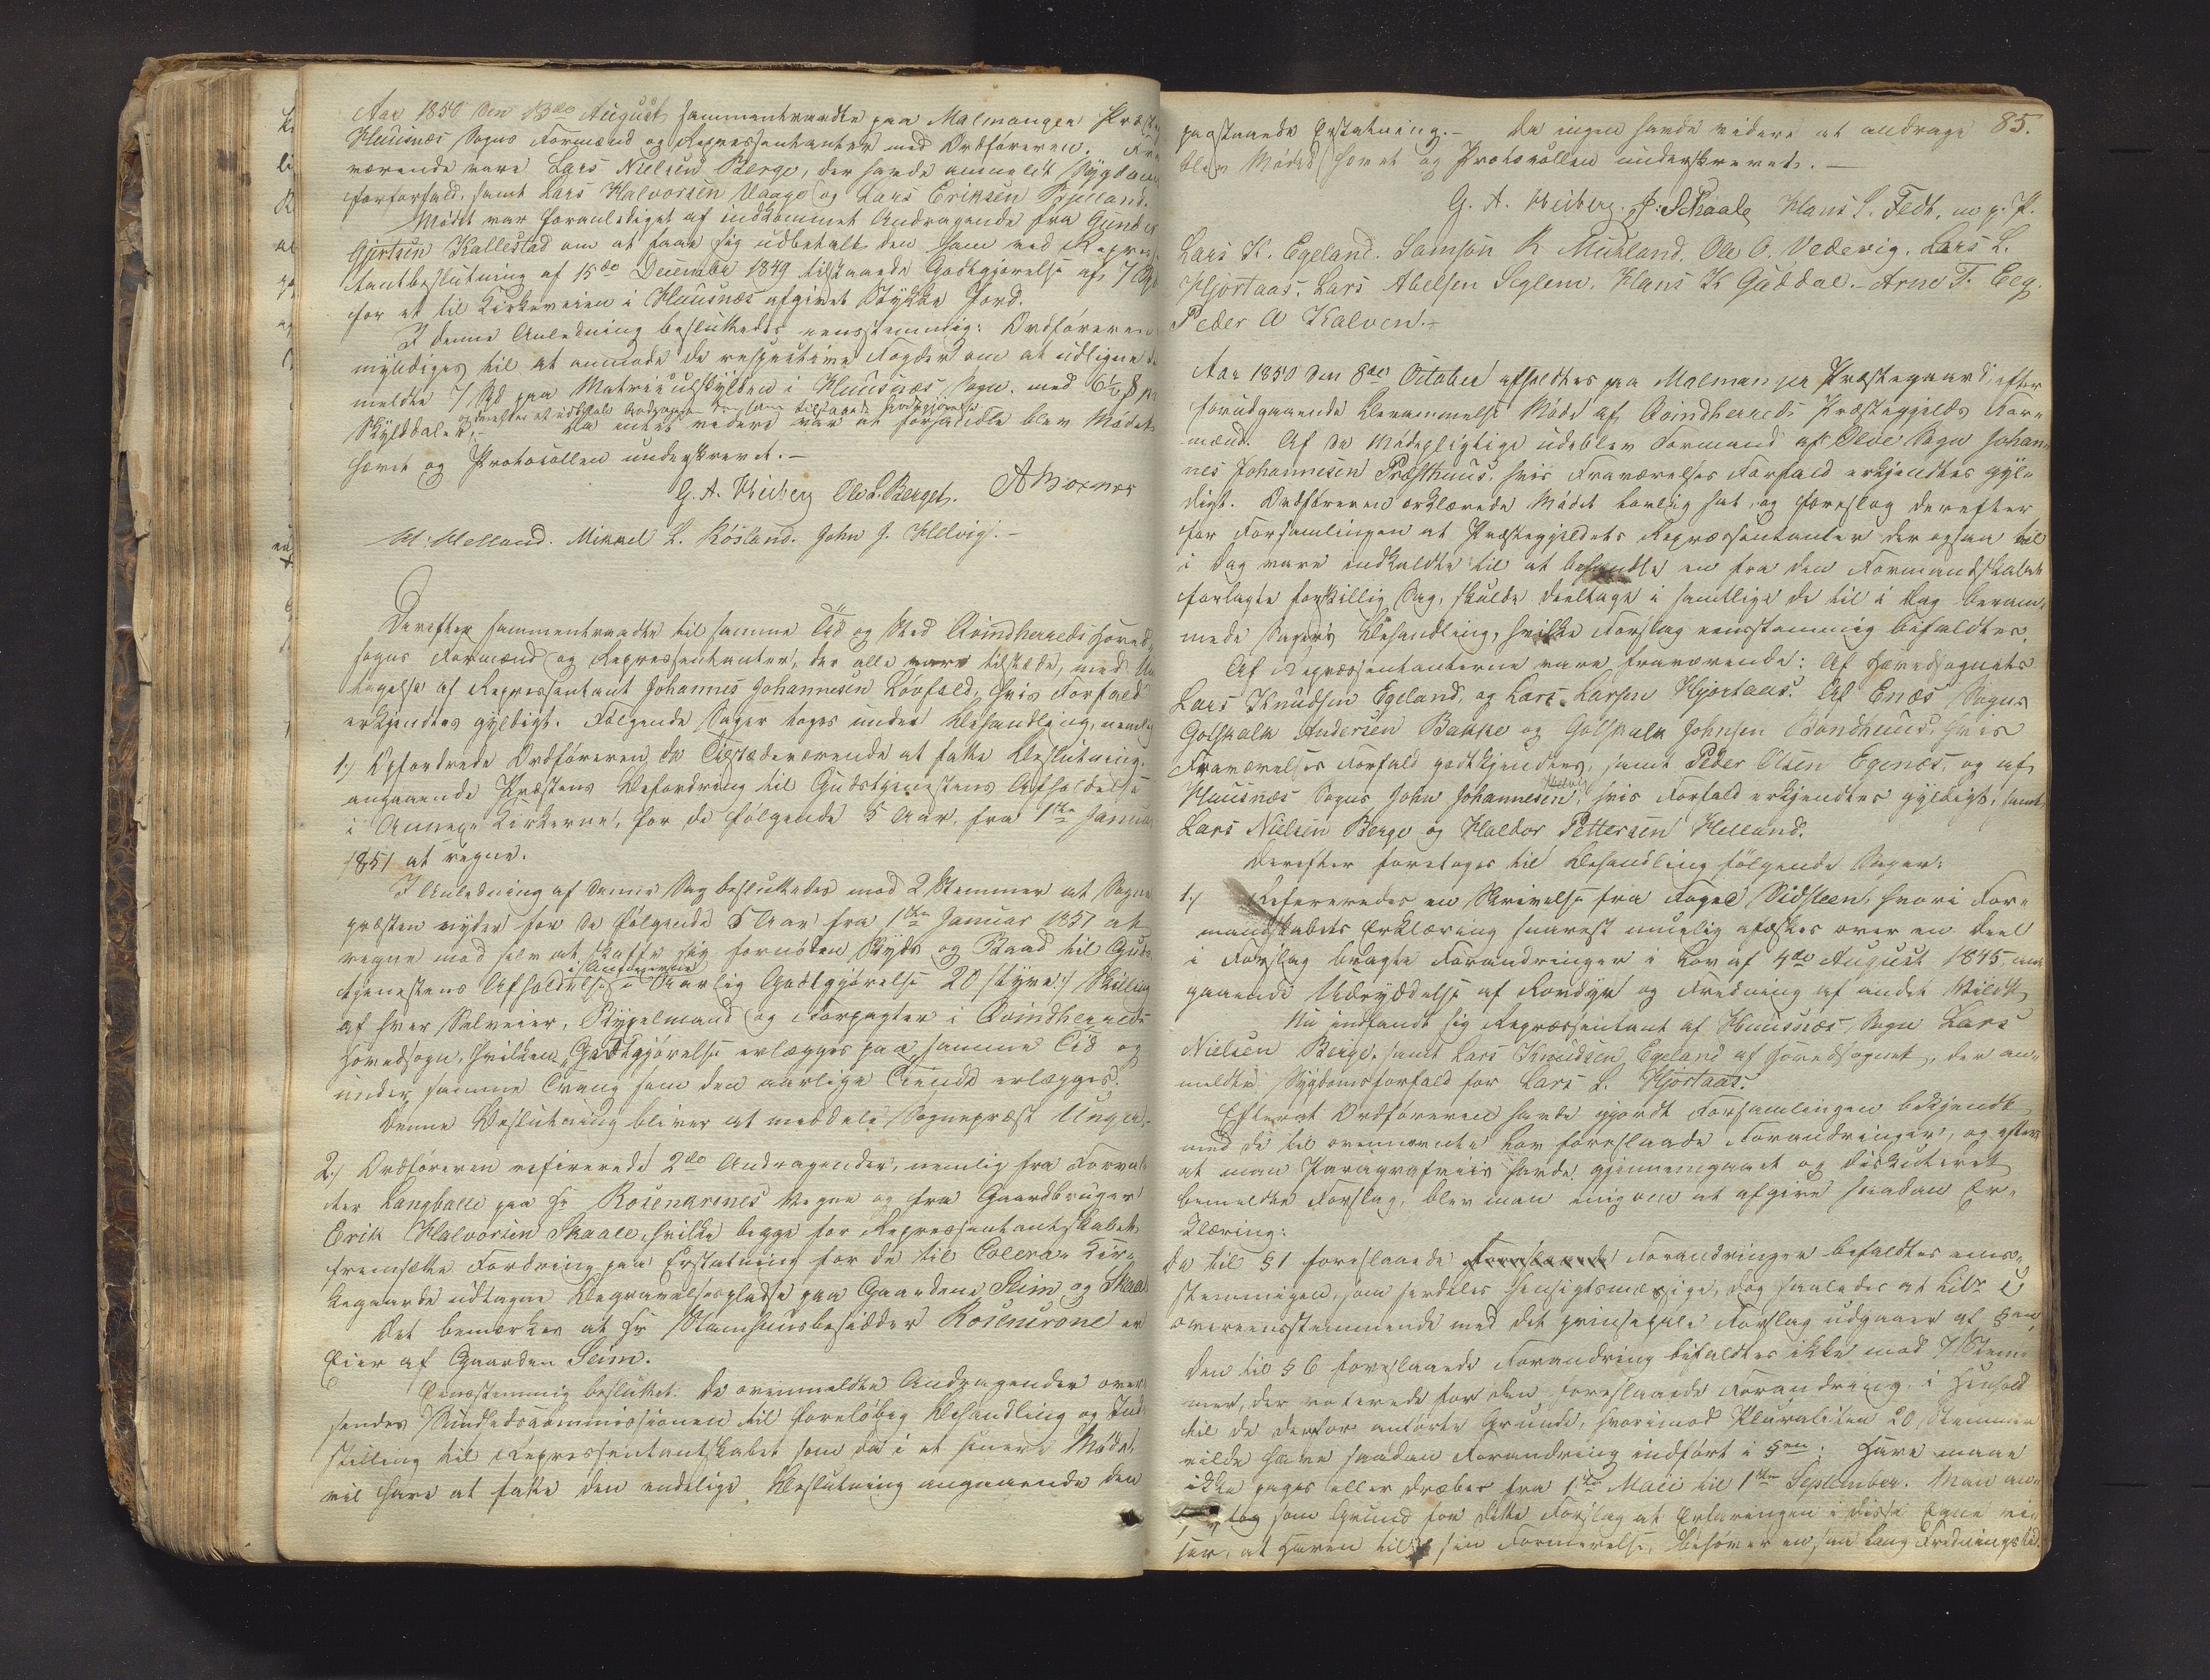 Aar 1850 den 13de August sammentraadte paa Malmangen Præste
Huusnæs Sogns Formænd og Repræsentanter med Ordføreren. Fra
værende vare Lars Nielsen Berge, der havde anmeldt Sygdoms
forfald, samt Lars Halvorsen Vaage og Lars Eriksen Bjelland.
Mødet var foranlediget af indkommet Andragende fra Gunder
Gjertsen Kallestad om at faae sig udbetalt den ham ved Repræsen
tantbeslutning af 15de December 1849 tilstaaede Godtgjørelse af 7 Spd
for et til Kirkeveien i Huusnæs afgivet Stykke Jord.
I denne Anledning besluttedes eensstemmig: Ordføreren
myndiges til at anmode de respective Fogder om at udligne de
meldte 7 Spd paa Matriculskylden i Huusnæs Sogn med 6½ ß pr
og derefter at udbetale Andrageren den ham tilstaaede Godtgjørelse
Skylddaler. Da intet videre var at forhandle blev Mødet
hævet og Protocollen underskrevet.-
G. A. Heiberg Ole L. Berget.
H. Helland. Mikkel L. Røsland. John J. Helvig.-
Derefter sammentraadte til samme Tid og Sted Qvindherreds Hoved
sogns Formænd og Repræsentanter, der alle vare tilstæde, med Und
tagelse af Repræsentant Johannes Johannesen Løvfald, hvis Forfald
erkjendtes gyldigt. Følgende Sager toges under Behandling, nemlig
1.) Opfordrede Ordføreren de Tilstædeværende at fatte Beslutning
angaaende Præstens Befordring til Gudstjenestens Afholdelse
i Annex-Kirkerne, for de følgende 5 Aar, fra 1ste Januar
1851 at regne.
I Anledning af denne Sag besluttedes med 2 Stemmer at Sogne
præsten nyder for de følgende 5 Aar fra 1ste Januar 1851 at
regne mod selv at skaffe sig fornøden Skyds og Baad til Guds
i Annexerne
tjenestens Afholdelse en aarlig Godtgjørelse 20 /tyve:/ Skilling
af hver Selveier, Bygselmand og Forpagter i Qvindherreds
Hovedsogn, hvilken Godtgjørelse erlægges paa samme Tid og
under samme Tvang som den aarlige Tiende erlægges.
Denne Beslutning bliver at meddele Sognepræst Unger.
2.) Ordføreren refererede 2de Andragender, nemlig fra Forval-
ter Langballe paa Hr Rosenkrones Vegne og fra Gaardbruger
Erik Halvorsen Skaale, hvilke begge for Repræsentantskabet
fremsætte Fordring paa Erstatning for de til Colera-Kir-
kegaarde udtagne Begravelsespladse paa Gaardene Seim og Skaale
Det bemærkes at Hr Stamhuusbesidder Rosenkrone er
Eier af Gaarden Seim.
Eensstemmig besluttet: De ovenmeldte Andragender over
sendes Sundhedscommissionen til foreløbig Behandling og Ind
stilling til Repræsentantskabet som da i et senere Møde
vil have at fatte den endelige Beslutning angaaende den
85.
paastaaede Erstatning.- Da ingen havde videre at andrage
blev Mødet hævet og Protocollen underskrevet.-
G. A. Heiberg. J: Skaale Hans S. Fedt, m p. P.
Lars K. Egeland. Samson R Muhland. Ole O. Vedevig. Lars L.
Hjortaas. Lars Abelsen Seglem. Hans K Guddal.- Arne T. Eeg.
Peder A Kalven.-
Aar 1850 den 8de October afholdtes paa Malmangen Præstegaard efter
forudgaaende Berammelse Møde af Qvindherreds Præstegjelds For-
mænd. Af de Mødepligtige udeblev Formand af Ølve Sogn Johan-
nes Johannesen Præsthuus, hvis Fraværelses Forfald erkjendtes gyl-
digt. Ordføreren erklærede Mødet lovlig sat, og foreslog derefter
for Forsamlingen at Præstegjeldets Repræsentanter der ogsaa til
i Dag vare indkaldte til at behandle en fra den Formandskabet
forlagte forskillig Sag, skulde deeltage i samtlige de til i Dag beram-
mede Sagers Behandling, hvilke Forslag eensstemmig bifaldtes.
Af Repræsentanterne vare fraværende: Af Hovedsognets
Lars Knudsen Egeland, og Lars Larsen Hjortaas. Af Enæs Sogns
Golskalk Andersen Bakke og Golskalk Johnsen Bondhuus, hvis
Fraværelses Forfald godtkjendtes, samt Peder Olsen Egenæs, og af
Helvig
Huusnæs Sogns John Johannesen, hvis Forfald erkjendtes gyldigt, samt
Lars Nielsen Berge og Haldor Pettersen Helland.
Derefter foretoges til Behandling følgende Sager:
1.) Refereredes en Skrivelse fra Foged Sidsteen, hvori For-
mandskabets Erklæring snarest muelig æskes over en Deel
i Forslag bragte Forandringer i Lov af 4de August 1845, an-
gaaende Udryddelse af Rovdyr og Fredning af andet Vildt
Nu indfandt sig Repræsentant af Huusnæs Sogn Lars
Nielsen Berge, samt Lars Knudsen Egeland af Hovedsognet, der an-
meldte Sygdomsforfald for Lars L. Hjortaas.
Efterat Ordføreren havde gjordt Forsamlingen bekjendt
med de til ovennævnte Lov foreslaaede Forandringer, og efter
at man Paragrafviis havde gjennemgaaet og discuteret
bemeldte Forslag, blev man enig om at afgive saadan Er-
klæring:
De til §1 foreslaaede Foreslaaede Forandringer bifaldtes eens-
stemmigen, som særdeles hensigtsmæssige, dog saaledes at Litr c
overeensstemmende med det prinsipale Forslag udgaaer af §en,
Den til §6 foreslaaede Forandring bifaldtes ikke mod 7 Stem-
mer, der voterede for den foreslaaede Forandring, i Henhold
til de derfor anførte Grunde, hvorimod Pluraliten 20 Stemmer
vilde have saadan Forandring indført i §en: Hare maae
ikke jages eller dræbes fra 1ste Maii til 1ste September. Man an-
tog som Grund for dette Forslag at Erfaringen i disse Egne vi-
ser, at Haren til sin Formerelse, behøver en saa lang Fredningstid.